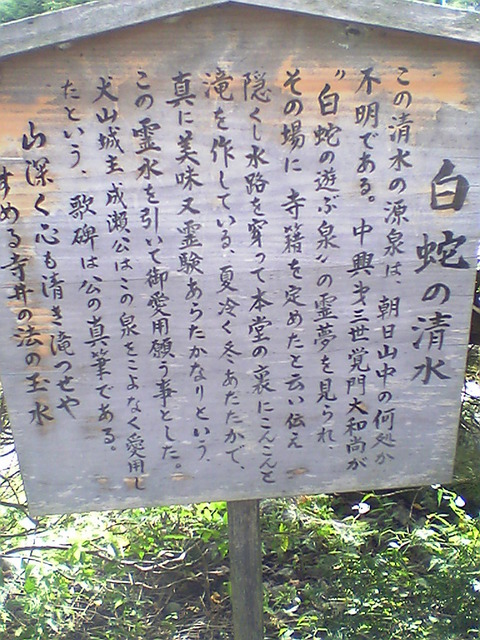 白蛇の清水
この清水の源泉は、朝日山中の何処か
不明である。中興才三世覚門大和尚が
〃白蛇の遊ぶ泉〃の霊夢を見られ、
その場に 寺籍を定めたと云い伝え
隠くし水路を穿って本堂の裏にこんこんと
滝を作している、夏冷く冬あたたかで、
真に美味又霊験あらたかなりという、
この霊水を引いて御愛用願う事とした。
犬山城主成瀬公はこの泉をこよなく愛用し
たという、歌碑は公の真筆である。
山深く心も清き滝つせや
すめる寺井の法の玉水